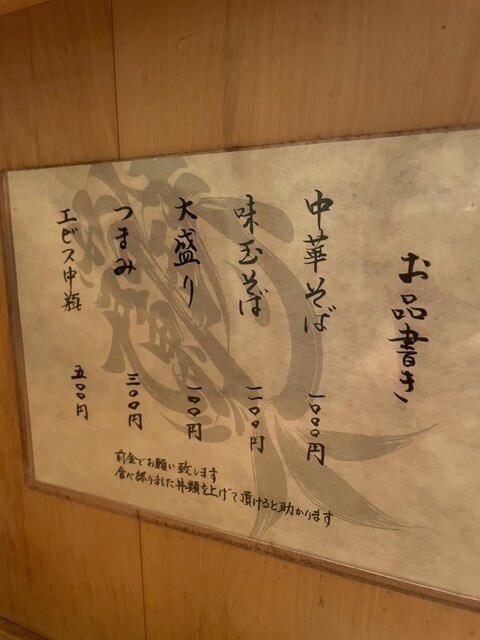 お品書き
中華そば 一〇〇〇円
味玉そば 一一〇〇円
大盛り 一〇〇円
つまみ 三〇〇円
エビス中瓶 五〇〇円
前金でお願い致します
食べ終りました丼類を上げて頂けると助かります